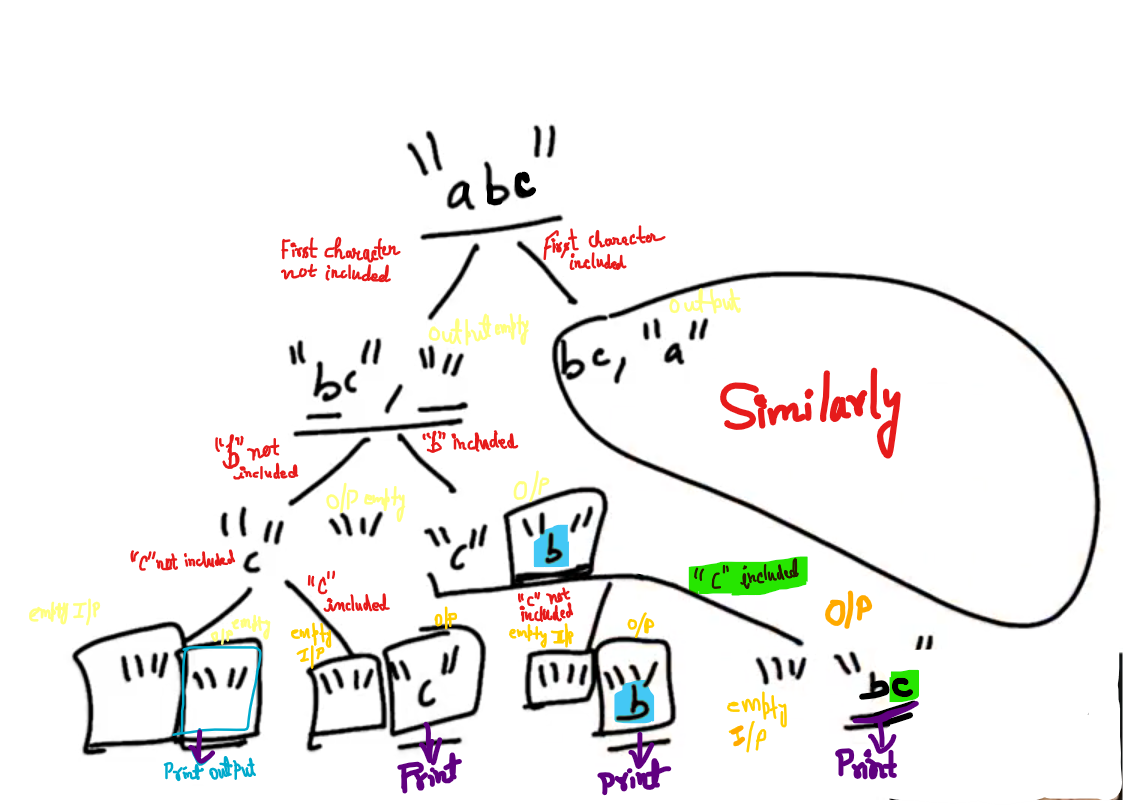 "abc"
First character
not included
First character
included
output empty
output
"bc", ""
bc, "a"
Similarly
"b" not
included
"b" included
O/P empty
O/P
"c" ""
"c" "b"
"c" not included
"c"
included
"c" not
included
"c" included
empty I/P
O/P empty
empty
I/P
O/P
empty I/P
O/P
O/P
"" ""
"" "c"
"" "b"
"" "bc"
empty
I/P
Print output
Print
Print
Print